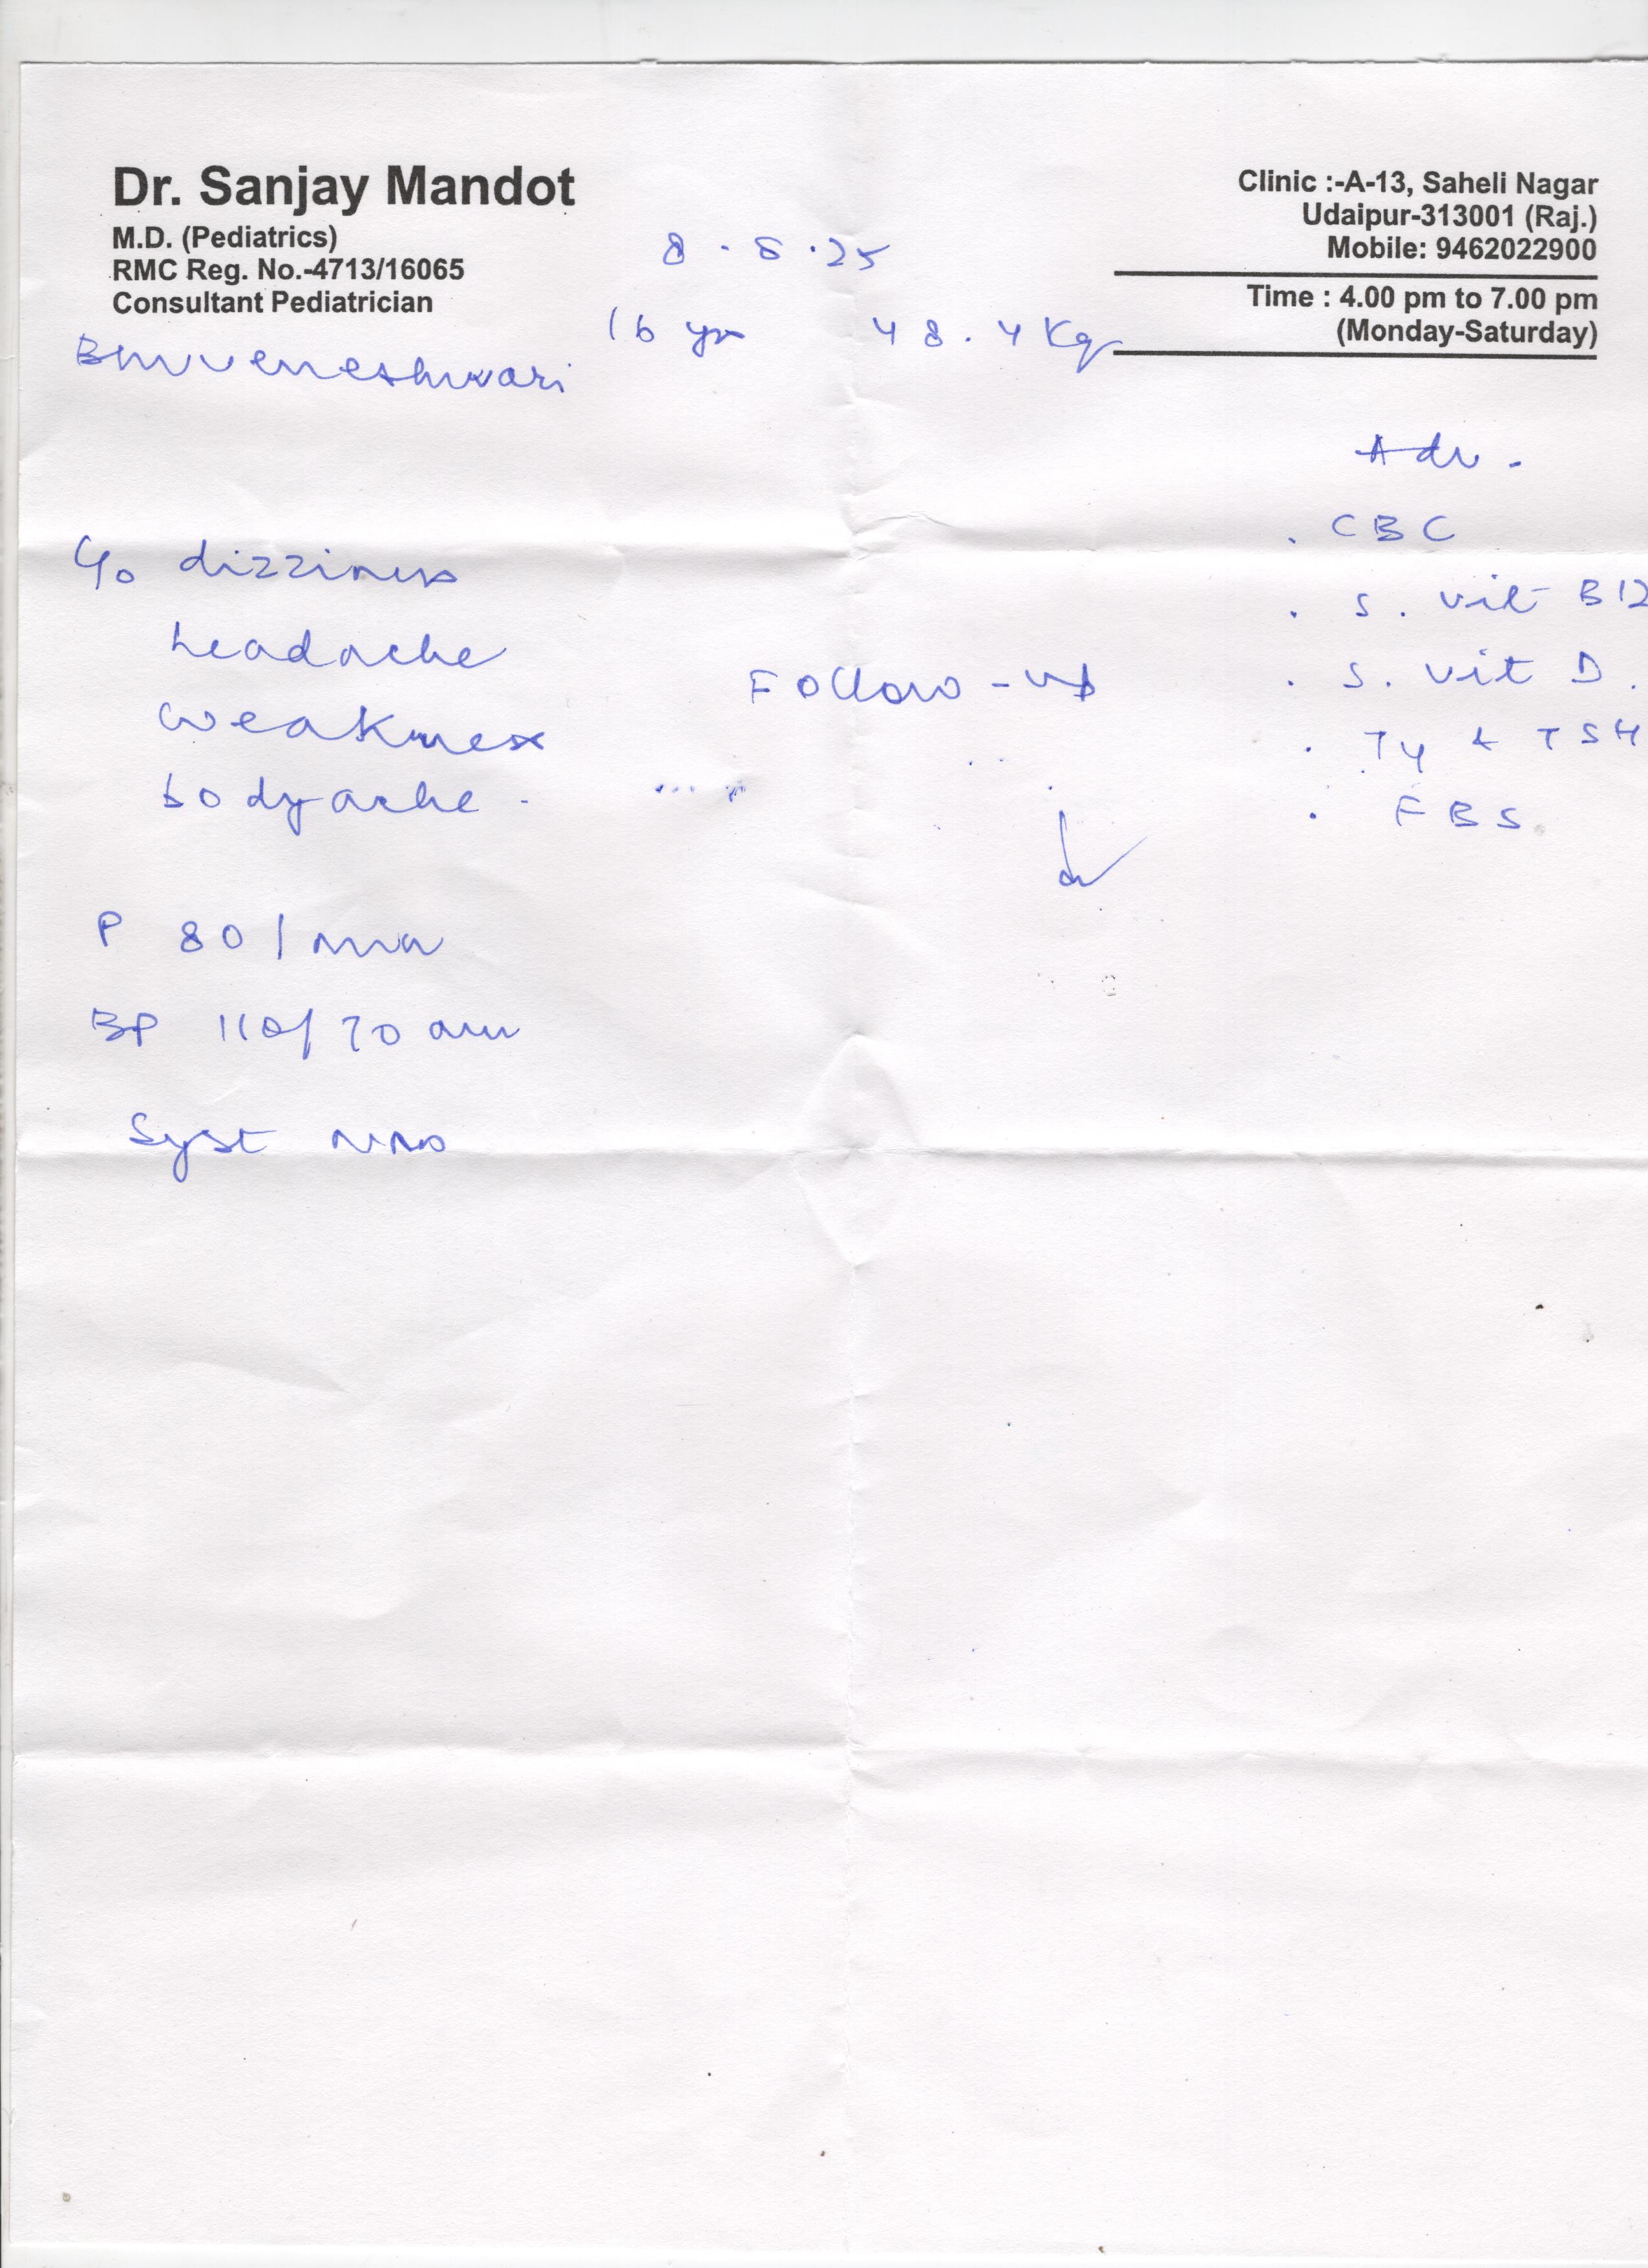 Dr. Sanjay Mandot
M.D. (Pediatrics)
RMC Reg. No.-4713/16065
Consultant Pediatrician
Clinic :-A-13, Saheli Nagar
Udaipur-313001 (Raj.)
Mobile: 9462022900
Time : 4.00 pm to 7.00 pm
(Monday-Saturday)
8.8.25
Bhuveneshwari 16 yr 48.4 Kg
Adv.
. CBC
. S. Vit B12
. S. Vit D.
. T4 & TSH
. FBS
C/o dizziness
headache
weakness
bodyache.
Follow-up
P 80/min
BP 110/70
Syst